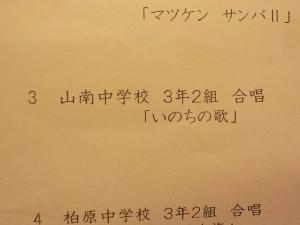 「マツケン サンバⅡ」
3 山南中学校 3年2組 合唱
「いのちの歌」
4 柏原中学校 3年2組 合唱